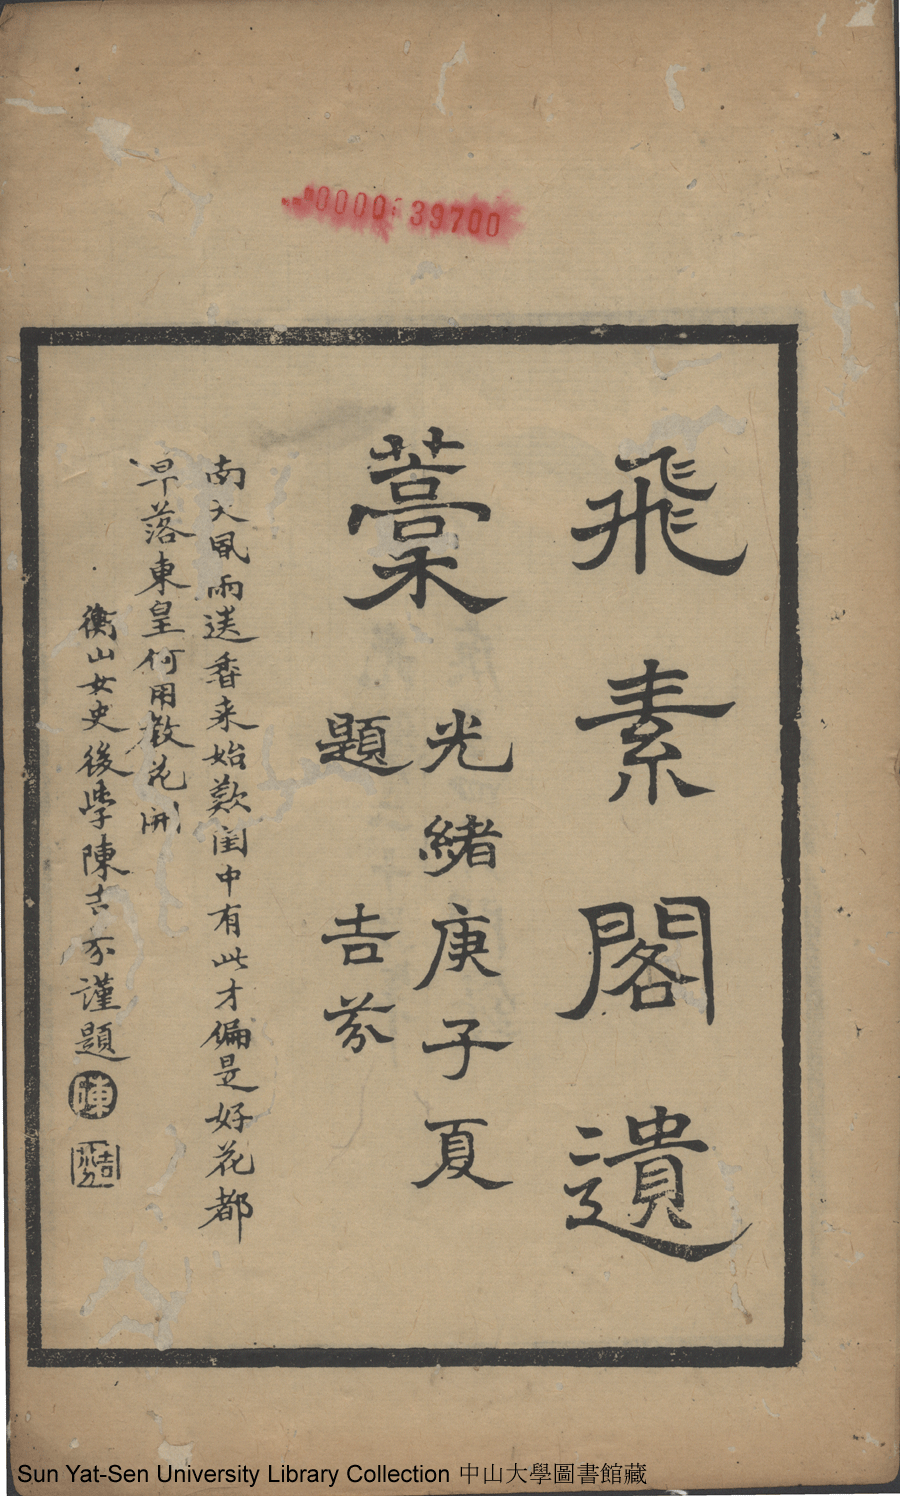 0000 39700
飛素閣遺
藁
光緒庚子夏
題
吉芬
南天風雨送香来始歎閨中有此才偏是好花都
早落東皇何用教花開
衡山女史後學陳吉芬謹題
陳
吉芬
Sun Yat-Sen University Library Collection 中山大學圖書館藏